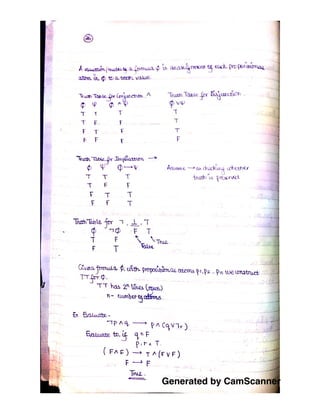 A valuation/model of a formula φ is an assignment of each propositional
atom in φ to a truth value.
Truth Table for Conjunction ∧ Truth Table for Disjunction
φ ψ φ∧ψ φ∨ψ
T T T T
T F F T
F T F T
F F F F
Truth Table for Implication →
φ ψ φ→ψ Assume → is checking whether
T T T truth is preserved
T F F
F T T
F F T
Truth Table for ¬, ⊥, T
φ ¬φ F T
T F True
F T False
Given formula φ with propositional atoms p1, p2.. pn we construct
TT for φ.
TT has 2ⁿ lines (rows)
n - number of atoms.
Ex. Evaluate.
¬p∧q → p∧(q∨¬r)
Evaluate to, if q = F
p, r = T.
(F∧F) → T∧(F∨F)
F → F
True.
Generated by CamScanner